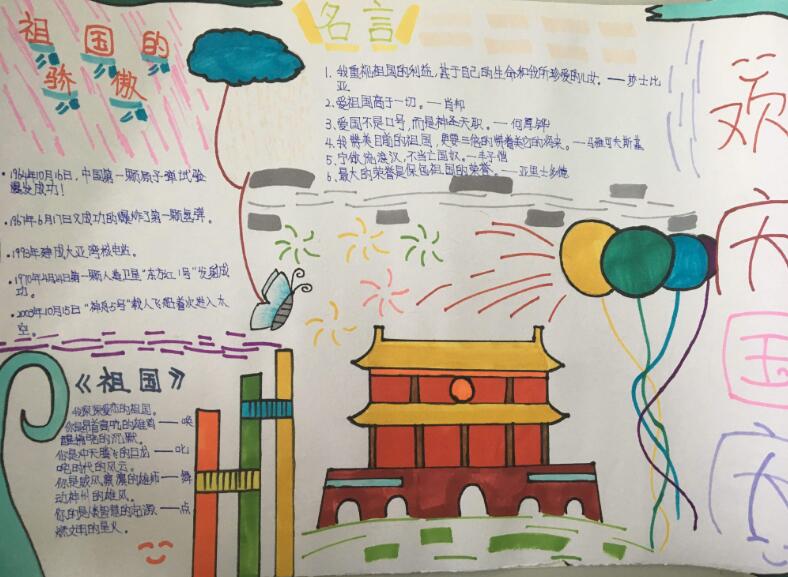 祖国的
骄傲
1964年10月16日，中国第一颗原子弹试验
爆发成功！
1967年6月17日又成功的爆炸了第一颗氢弹。
1993年建成大亚湾核电站。
1970年4月24日第一颗人造卫星“东方红1号”发射成
功。
2003年10月15日“神舟5号”载人飞船首次进入太
空。
名言
1、我重视祖国的利益，甚于自己的生命和我所珍爱的儿女。——莎士比
亚
2、爱祖国高于一切。——肖邦
3、爱国不是口号，而是神圣天职。——何厚铧
4、我赞美目前的祖国，更要三倍的赞美它的将来。——马雅可夫斯基
5、宁做流浪汉，不当亡国奴。——丰子恺
6、最大的荣誉是保卫祖国的荣誉。——亚里士多德
《祖国》
我深深爱恋的祖国。
你是昂首高吭的雄鸡——唤
醒拂晓的沉默，
你是冲天腾飞的巨龙——叱
咤时代的风云，
你是威风凛凛的雄狮——舞
动神州的雄风，
你是人类智慧的起源——点
燃文明的星火。
欢
庆
国
庆